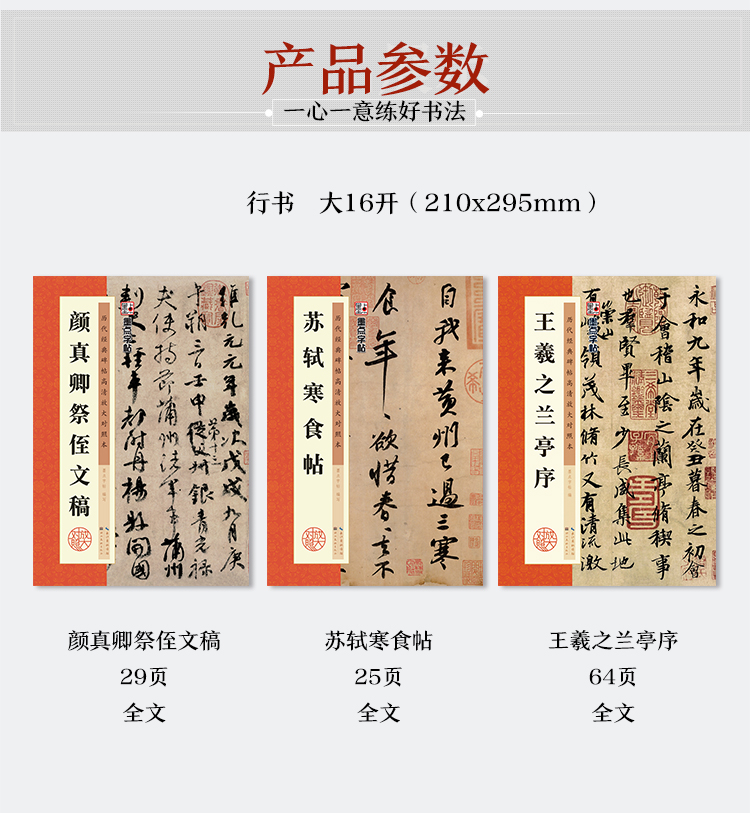 产品参数
一心一意练好书法
行书 大16开（210x295mm）
颜真卿祭侄文稿
历代经典碑帖高清放大对照本
墨点字帖
维乾元元年岁次戊戌九月庚
苏轼寒食帖
历代经典碑帖高清放大对照本
墨点字帖
自我来黄州已過三寒
食年〻欲惜春〻去不
王羲之兰亭序
历代经典碑帖高清放大对照本
墨点字帖
永和九年歲在癸丑暮春之初會
于會稽山陰之蘭亭脩稧事
也羣賢畢至少長咸集此地
有崇山峻領茂林脩竹又有清流激
颜真卿祭侄文稿
29页
全文
苏轼寒食帖
25页
全文
王羲之兰亭序
64页
全文